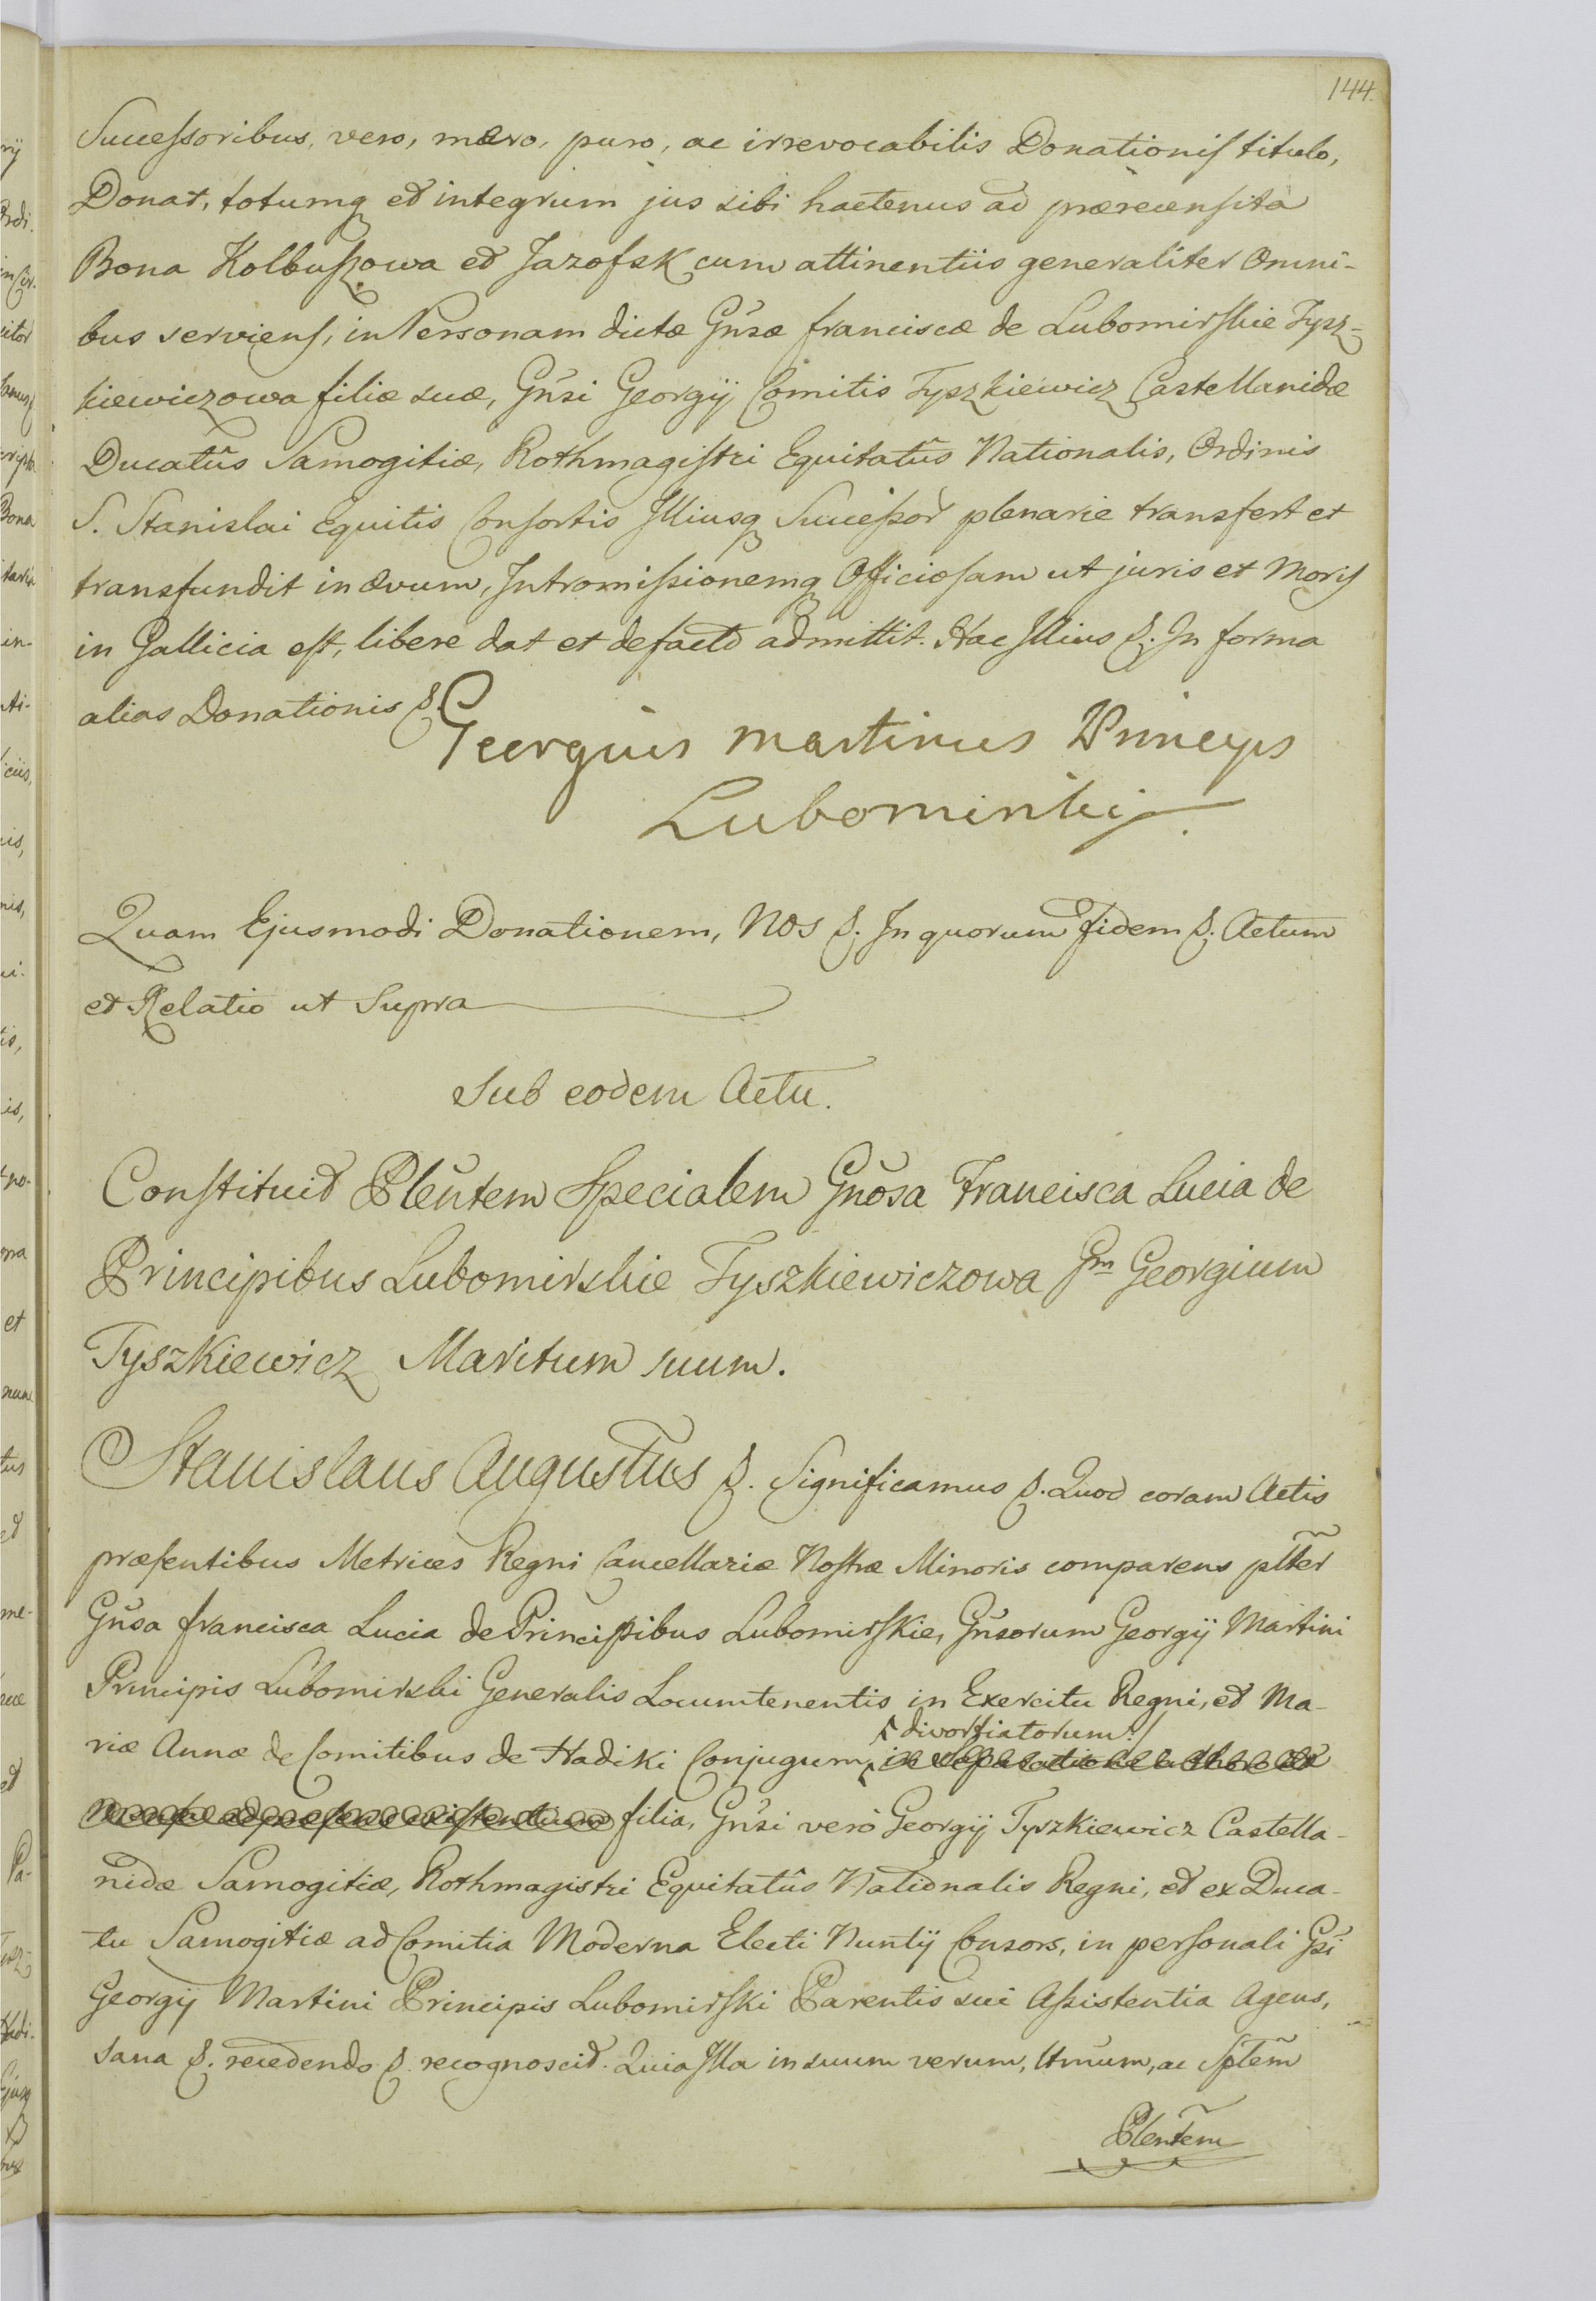 144.
Successoribus, vero, mero, puro, ac irrevocabilis Donationis titulo,
Donat, totumq et integrum jus sibi hactenus ad præcensita
Bona Kolbuszowa et Jazofsk cum attinentiis generaliter Omni-
bus serviens, in Personam dictæ Gñsæ franciscæ de Lubomirskie Tysz-
kiewiczowa filiæ suæ, Gñsi Georgij Comitis Tyszkiewicz Castellanidæ
Ducatûs Samogitiæ, Rothmagistri Equitatûs Nationalis, Ordinis
S. Stanislai Equitis Consortis Illiusq Success̃or plenarie transfert et
transfundit in ævum, Intromissionemq Officiosam ut juris et Moris
in Gallicia est, libere dat et defacto admittit. Hac Illius &. In forma
alias Donationis &.
Georgius Martinus Princeps
Lubomirski
Quam Ejusmodi Donationem, Nos &. In quorum fidem &. Actum
et Relatio ut Supra
Sub eodem Actu.
Constituit Pleñtem Specialem Gñosa Francisca Lucia de
Principibus Lubomirskie Tyszkiewiczowa Gm Georgium
Tyszkiewicz Maritum suum.
Stanislaus Augustus &. Significamus &. Quod coram Actis
præsentibus Metrices Regni Cancellariæ Nostræ Minoris comparens pltẽr
Gñsa francisca Lucia de Principibus Lubomirskie, Gñsorum Georgij Martini
Principis Lubomirski Generalis Locumtenentis in Exercitu Regni, et Ma-
divorsiatorum!/
riæ Annæ de Comitibus de Hadiki Conjugum, in separatione a thoro et
ad præsens existentium filia, Gñsi verò Georgij Tyszkiewicz Castella-
nidæ Samogitiæ, Rothmagistri Equitatûs Nationalis Regni, et ex Duca-
tu Samogitiæ ad Comitia Moderna Electi Nuntij Consors, in personali Gsĩ
Georgij Martini Principis Lubomirski Parentis sui Assistentia Agens,
sana &. recedendo &. recognoscit. Quia Illa in suum verum, Ltm̃um, ac Sptẽm
Plentẽm